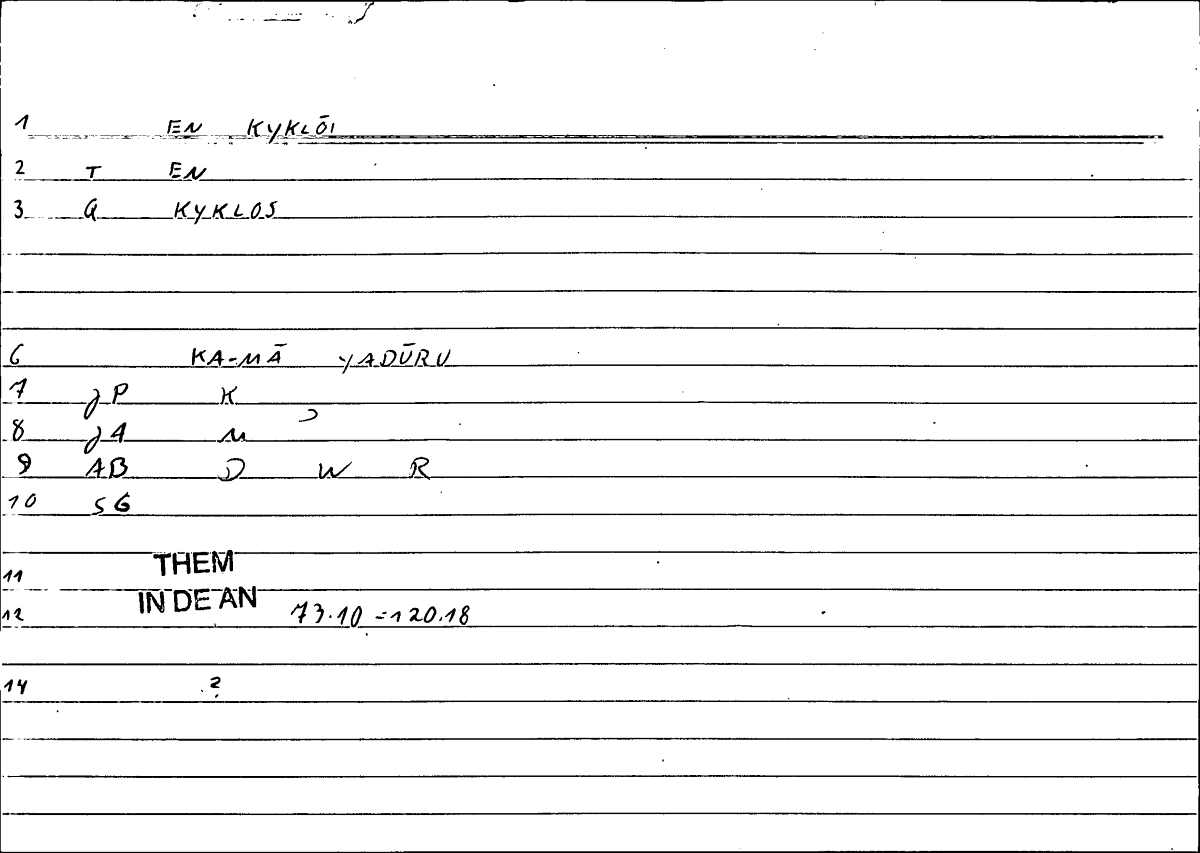 1 EN KYKLŌI
2 T EN
3 Q KYKLOS
6 KA-MĀ YADŪRU
7 JP K
8 J4 M ʾ
9 AB D W R
10 SG
11 THEM
12 IN DE AN 73.10 = 120.18
14 ?